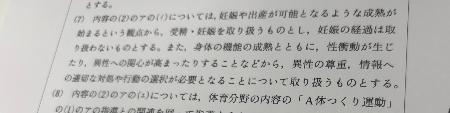 とする。
(7) 内容の(2)のアの(ｲ)については,妊娠や出産が可能となるような成熟が
始まるという観点から、受精・妊娠を取り扱うものとし、妊娠の経過は取
り扱わないものとする。また、身体の機能の成熟とともに、性衝動が生じ
たり、異性への関心が高まったりすることなどから、異性の尊重、情報へ
の適切な対処や行動の選択が必要となることについて取り扱うものとする。
(8) 内容の(2)のアの(ｴ)については,体育分野の内容の「A体つくり運動」
の(1)のアの指導との関連を図って